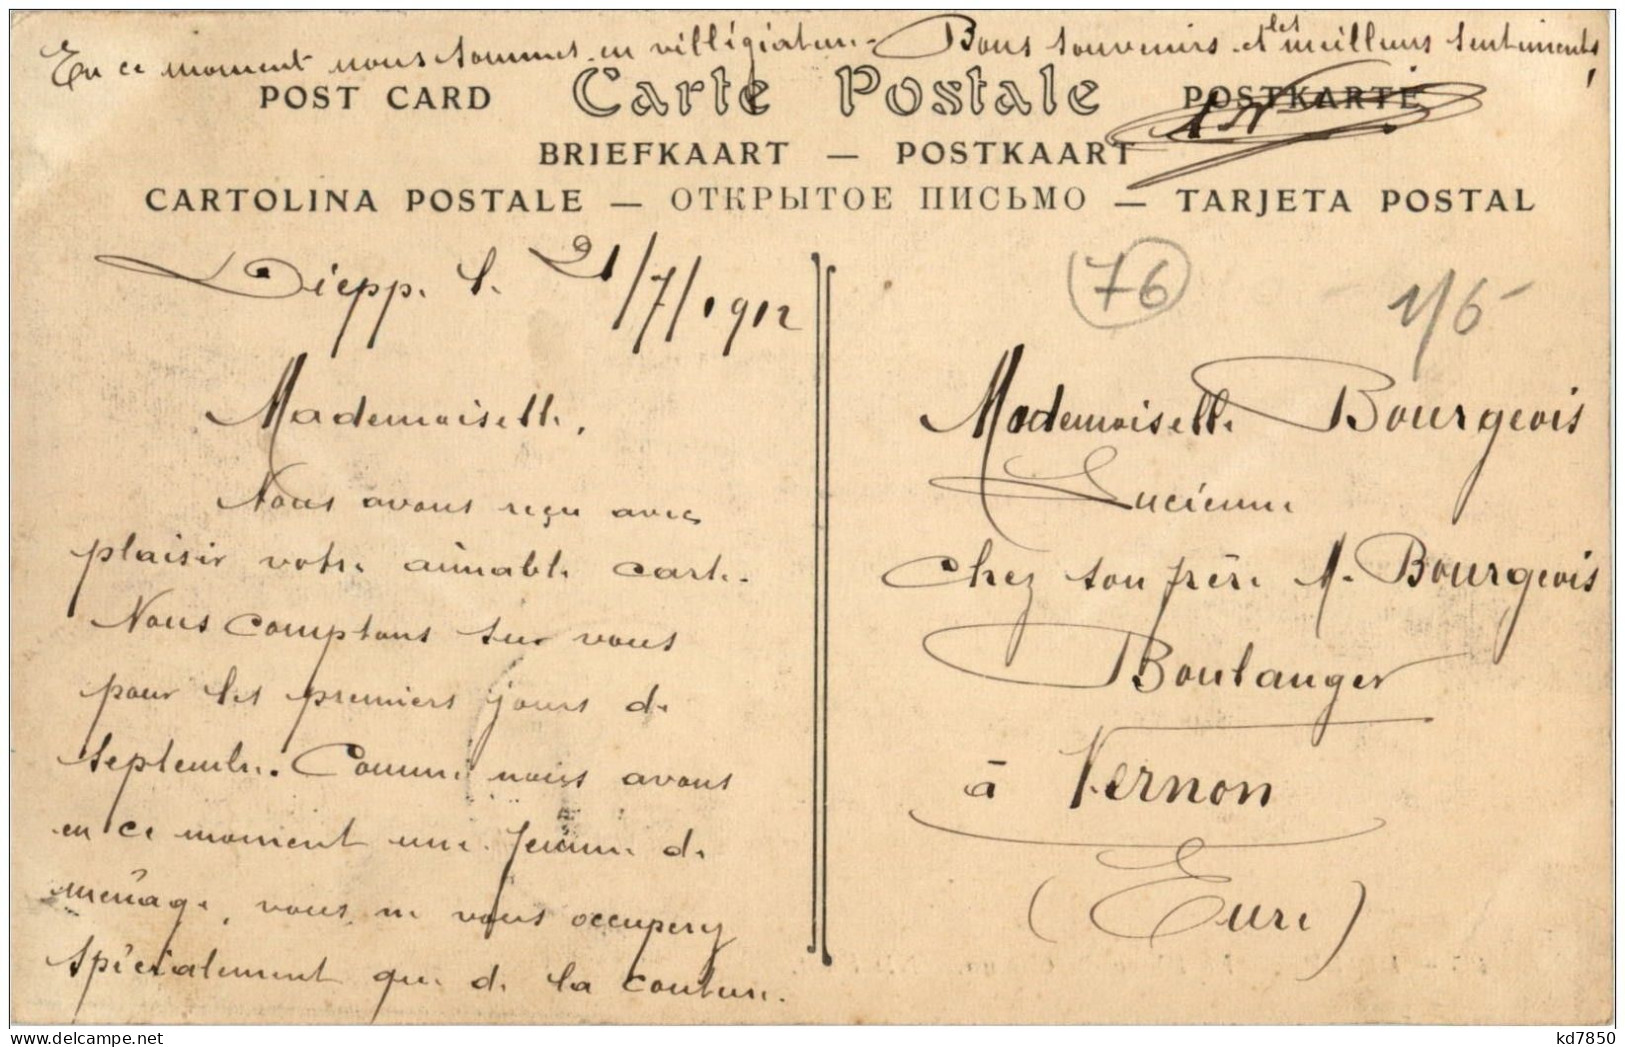 En ce moment nous sommes en villégiature - Bons souvenirs et les meilleurs sentiments,
POST CARD Carte Postale POSTKARTE
BRIEFKAART — POSTKAART
CARTOLINA POSTALE — ОТКРЫТОЕ ПИСЬМО — TARJETA POSTAL
Dieppe le 21/7/1912
Mademoiselle,
Nous avons reçu avec
plaisir votre aimable carte.
Nous comptons sur vous
pour les premiers jours de
septembre. Comme nous avons
en ce moment une femme de
ménage, vous ne vous occuperez
spécialement que de la couture.
76
1/6
Mademoiselle Bourgeois
Lucienne
Chez son père M. Bourgeois
Boulanger
à Vernon
(Eure)
delcampe.net
kd7850